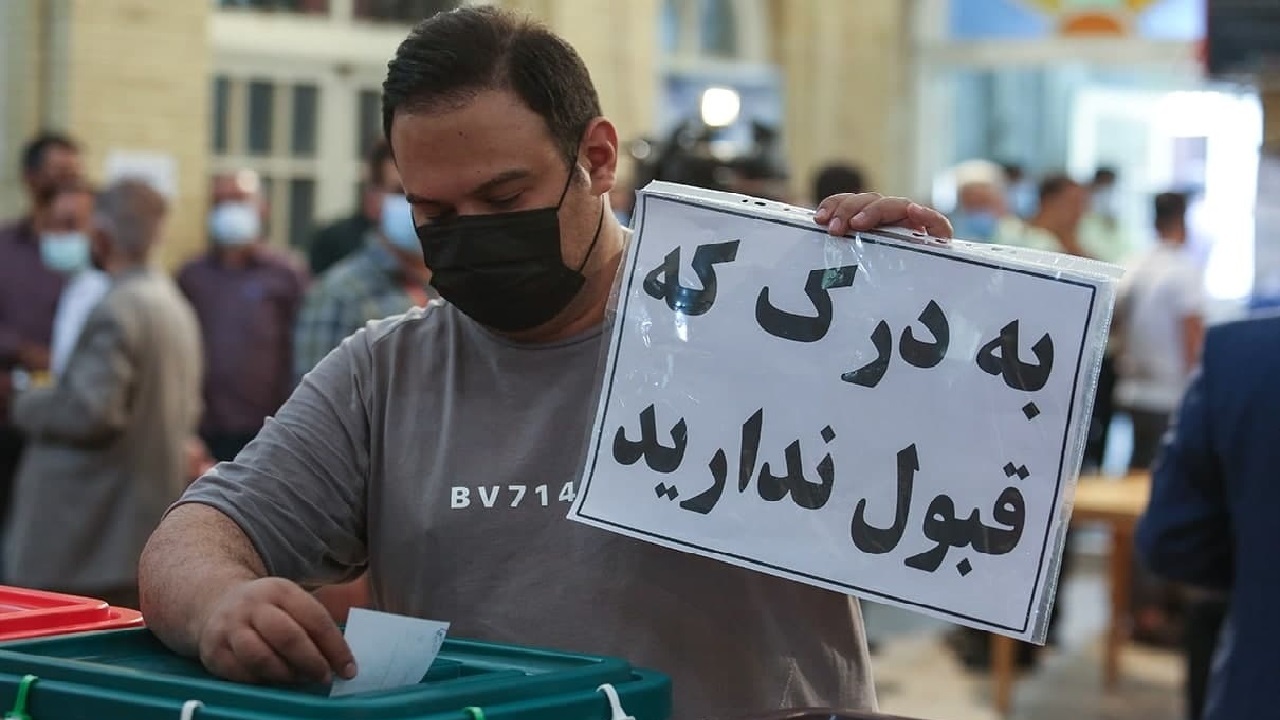 به درک که
قبول ندارید
BV714